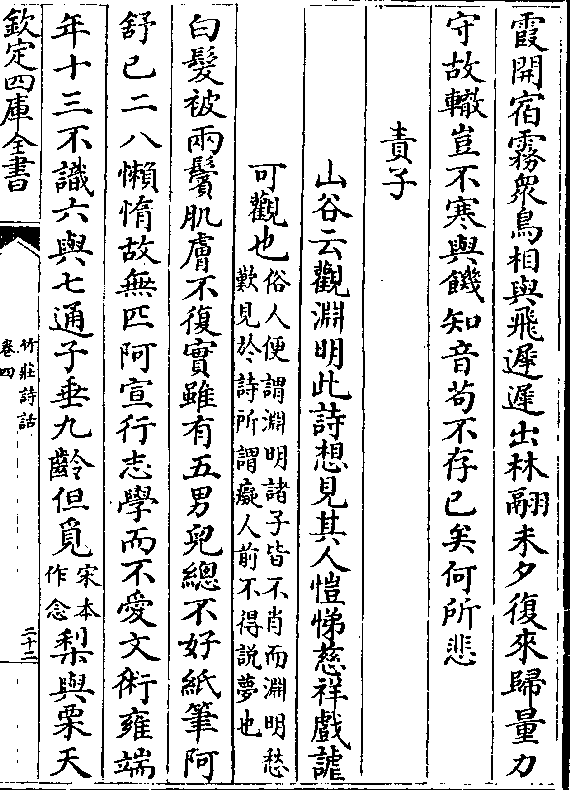 霞開宿霧衆鳥相與飛遲遲出林翮未夕復來歸量力
守故轍豈不寒與饑知音茍不存已矣何所悲
責子
山谷云觀淵明此詩想見其人愷悌慈祥戲謔
可觀也俗人便謂淵明諸子皆不肖而淵明愁
歎見於詩所謂癡人前不得説夢也
白髮被兩鬢肌膚不復實雖有五男兒總不好紙筆阿
舒已二八懶惰故無匹阿宣行志學而不愛文術雍端
年十三不識六與七通子垂九齡但覓宋本作念梨與栗天
欽定四庫全書
竹莊詩話
卷四
二十二